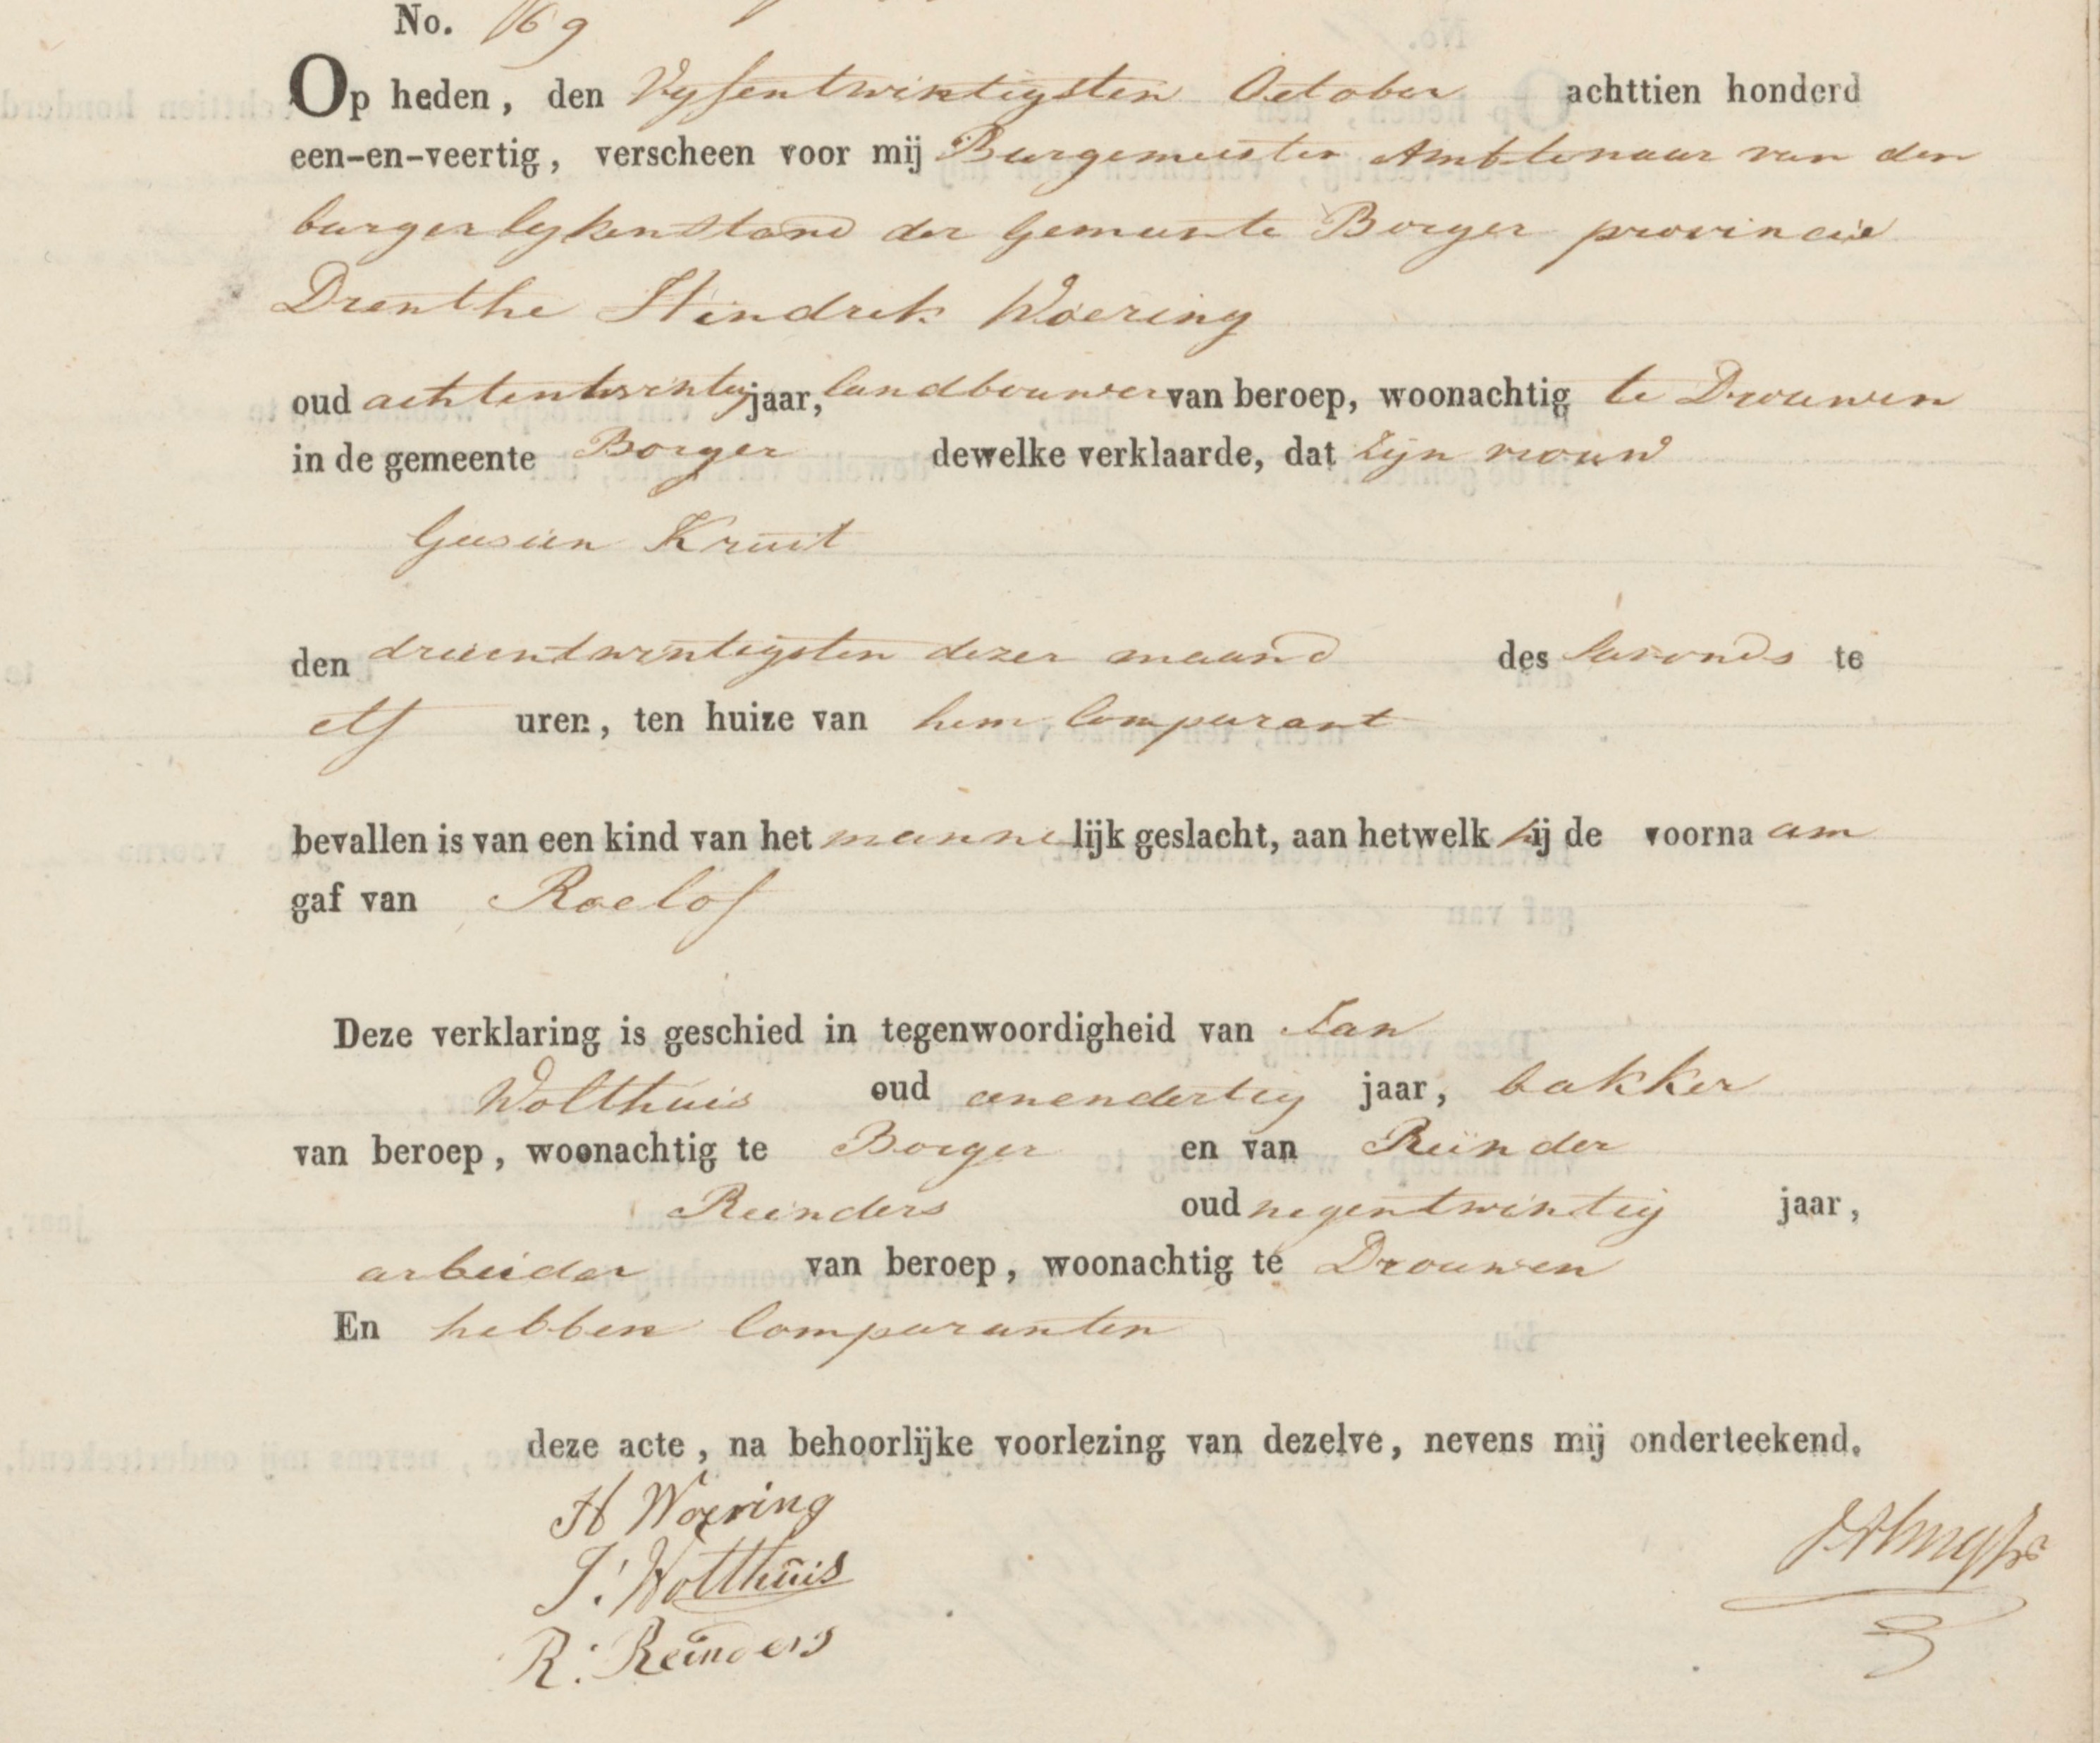 No. 69
Op heden, den Vyfentwintigsten October achttien honderd
een-en-veertig, verscheen voor mij Burgemeester Ambtenaar van den
burgerlykenstand der Gemeente Borger provincie
Drenthe Hindrik Woering
oud achtentwintig jaar, landbouwer van beroep, woonachtig te Drouwen
in de gemeente Borger dewelke verklaarde, dat zijn vrouw
Geesien Kruit
den drieentwintigsten dezer maand des savonds te
elf uren, ten huize van hem Comparant
bevallen is van een kind van het mannelijk geslacht, aan hetwelk hij de voornaam
gaf van Roelof
Deze verklaring is geschied in tegenwoordigheid van Jan
Wolthuis oud eenendertig jaar, bakker
van beroep, woonachtig te Borger en van Reinder
Reinders oud negentwintig jaar,
arbeider van beroep, woonachtig te Drouwen
En hebben Comparanten
deze acte, na behoorlijke voorlezing van dezelve, nevens mij onderteekend.
H Woering
J. Wolthuis
R: Reinders